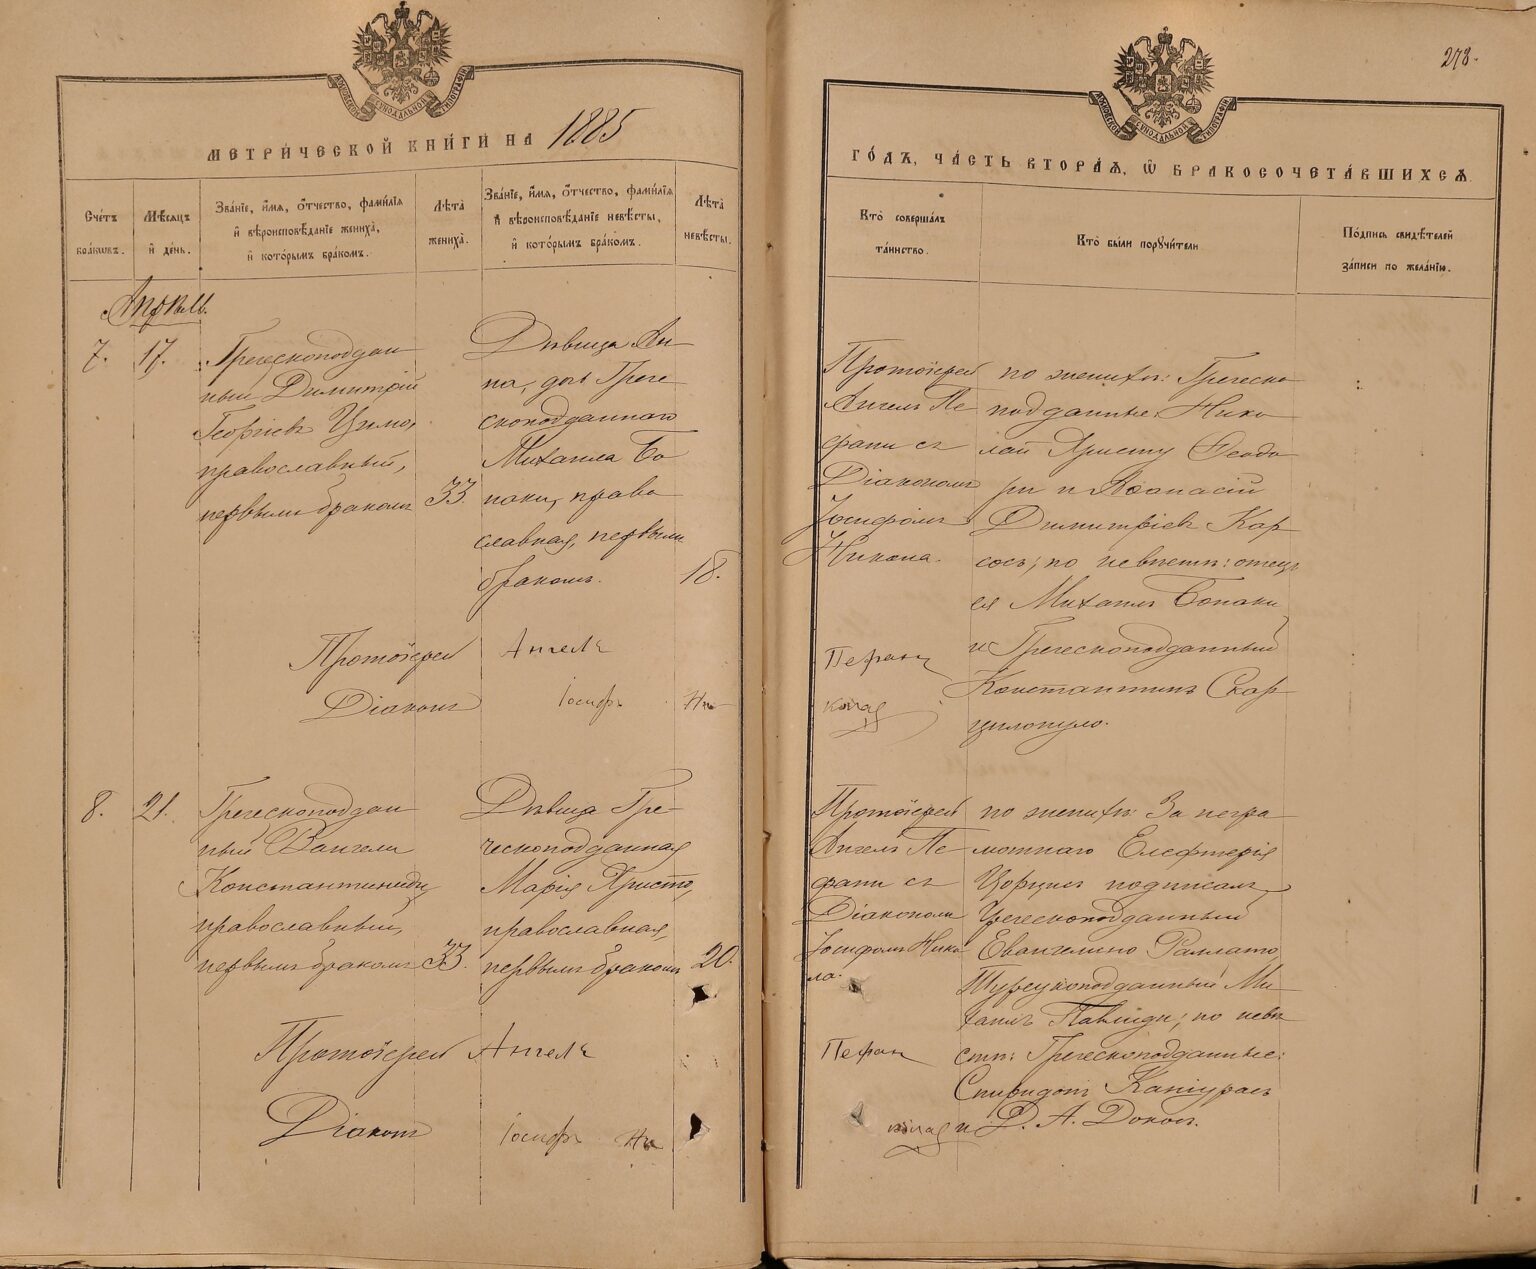 МОСКОВСКОЙ СѴНОДАЛЬНОЙ ТИПОГРАФІИ
МЕТРИ́ЧЕСКОЙ КНИ́ГИ НА 1885
Сче́тъ
бра́кωвъ.
Мѣ́сяцъ
и҆ де́нь.
Зва́нїе, и҆́мя, ѻ҆́тчество, фами́лїя
и҆ вѣроисповѣ́данїе жениха̀,
и҆ кото́рымъ бра́комъ.
Лѣ́та
жениха̀.
Зва́нїе, и҆́мя, ѻ҆́тчество, фами́лїя
и҆ вѣроисповѣ́данїе невѣ́сты,
и҆ кото́рымъ бра́комъ.
Лѣ́та
невѣ́сты.
Апрѣль.
7.
17.
Греческоподдан
ный Димитрій
Георгіевъ Цимо,
православный,
первымъ бракомъ
33.
Дѣвица Ан
на, дочь Грече
скоподданнаго
Михаила Бо
наки, право
славная, первымъ
бракомъ.
18.
Протоіерей Ангелъ
Діаконъ Іосифъ Ни
8.
21.
Греческоподдан
ный Вангели
Константиниди,
православный,
первымъ бракомъ
33.
Дѣвица Гре
ческоподданная
Марія Христо,
православная,
первымъ бракомъ
20.
Протоіерей Ангелъ
Діаконъ Іосифъ Ни
278.
МОСКОВСКОЙ СѴНОДАЛЬНОЙ ТИПОГРАФІИ
ГО́ДЪ, ЧА́СТЬ ВТОРА́Я, Ѽ БРАКОСОЧЕТА́ВШИХСЯ
Кто̀ соверша́лъ
та́инство.
Кто̀ бы́ли поручи́тели
По́дпись свидѣ́телей
за́писи по жела́нїю.
Протоіерей
Ангелъ Пе
фани съ
Діакономъ
Іосифомъ
Никола.
по женихѣ: Греческо
подданные: Нико
лай Христу Ѳеодо
ри и Аѳанасій
Димитріевъ Кар
сосъ; по невѣстѣ: отецъ
ея Михаилъ Бонаки
и Греческоподданный
Константинъ Скар
цилопуло.
Пефани
колај
Протоіерей
Ангелъ Пе
фани съ
Діакономъ
Іосифомъ Нико
ла.
по женихѣ: За негра
мотнаго Елефтерія
Цорцисъ подписалъ
Греческоподданный
Евангелино Раллато,
Турецкоподданный Ми
хаилъ Павлиди; по невѣ
стѣ: Греческоподданные:
Спиридонъ Каніурасъ
и Д. А. Доконъ.
Пефани
колај